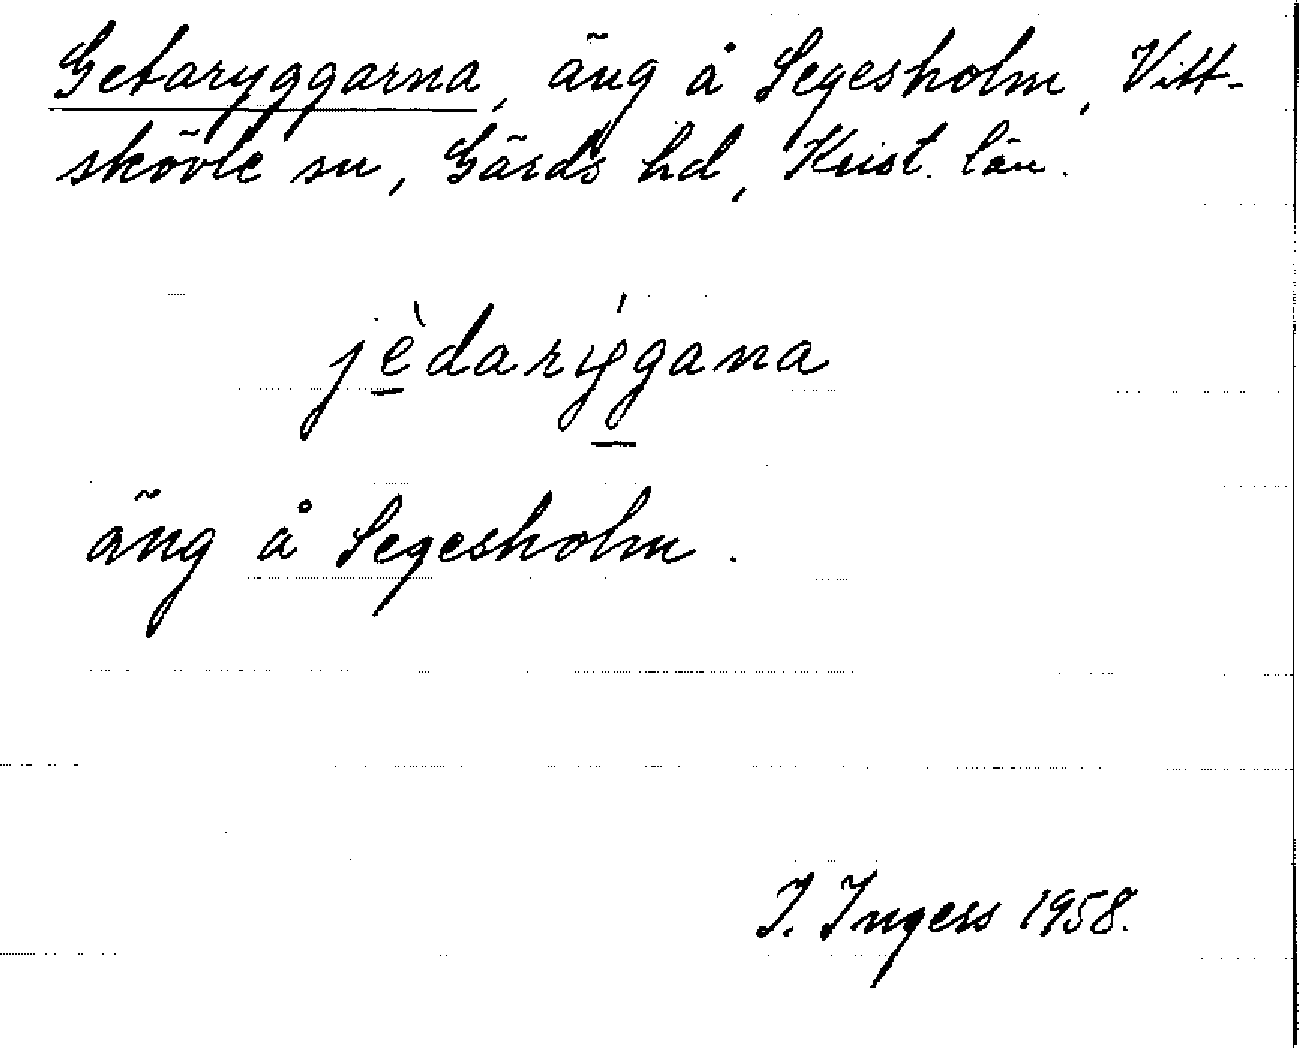 Getaryggarna, äng å Segesholm, Vitt-
skövle sn, Gärds hd, Krist. län.
jèdarýggana
äng å Segesholm.
I. Ingers 1958.